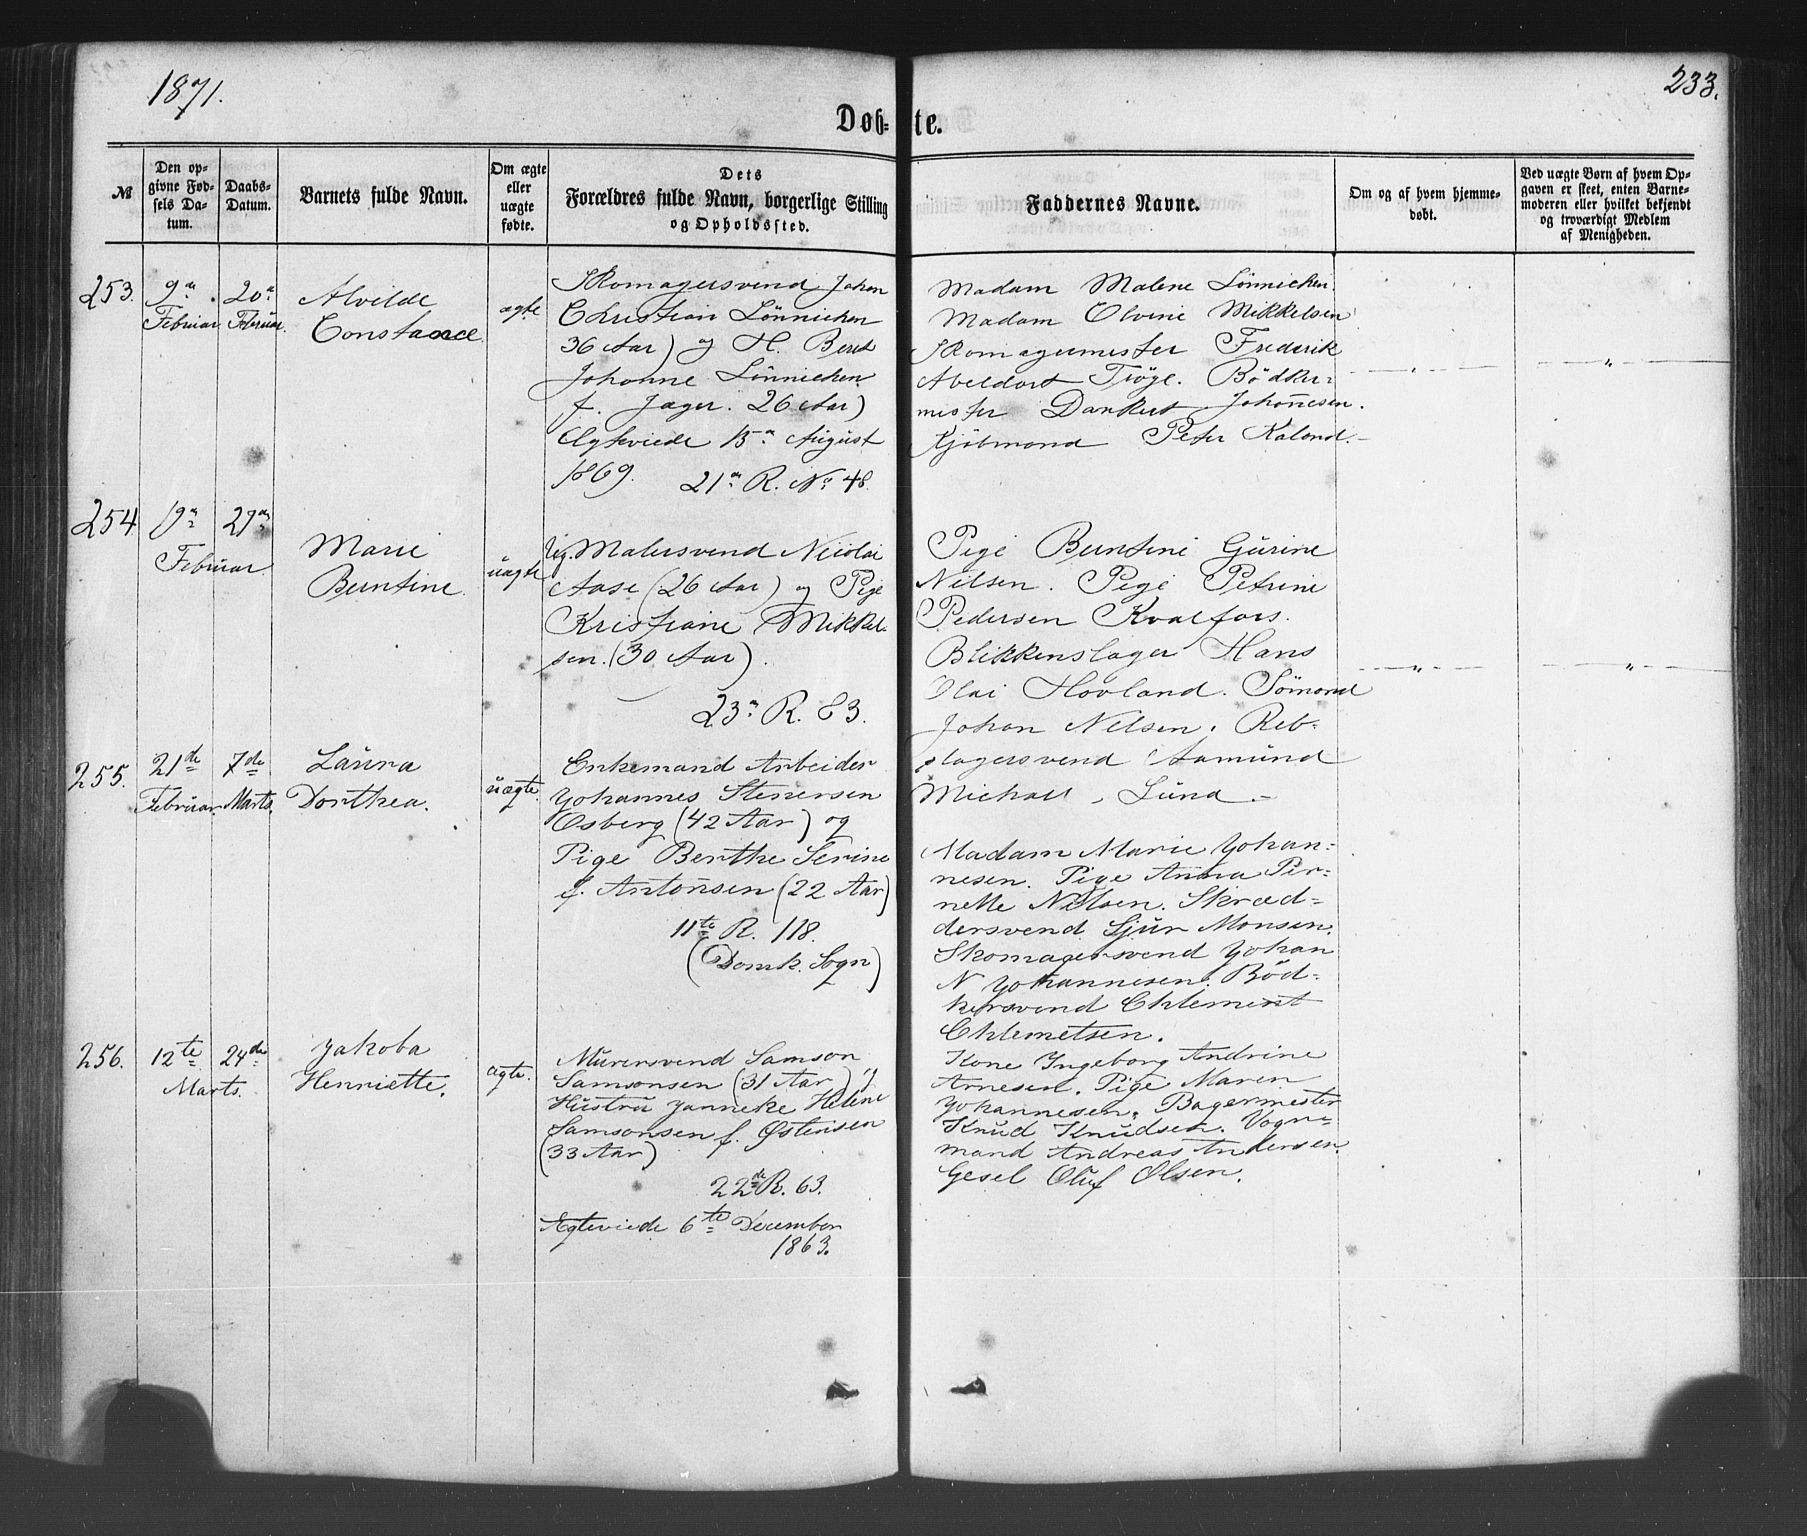 1871.
233.
Døb-te.
№
Den op-
givne Fød-
sels Da-
tum.
Daabs-
Datum.
Barnets fulde Navn.
Om ægte
eller
uægte
fødte.
Dets
Forældres fulde Navn, borgerlige Stilling
og Opholdssted.
Faddernes Navne.
Om og af hvem hjemme-
døbt.
Ved uægte Børn af hvem Op-
gaven er skeet, enten Barne-
moderen eller hvilket bekjendt
og troværdigt Medlem
af Menigheden.
253.
9de
Februar
20de
Februar
Alvilde
Constance
ægte
Skomagersvend Johan
Christian Lönnichen
36 Aar) og H. Berit
Johanne Lönnichen
f. Jæger. 26 Aar)
Ægteviede 15de August
1869. 21de R. No 48.
Madam Malene Lönnichen.
Madam Olvine Mikkelsen
Skomagermester Frederik
Abeldort Trøye. Bödker-
mester Dankert Johannesen.
Kjöbmand Peter Kaland.
254
Februar
27de
Marie
Berntine
uægte
Ug. Malersvend Nicolai
Aase (26 Aar) og Pige
Kristiane Mikkel-
sen. (30 Aar).
23de R. 83.
Pige Berntine Gurine
Nilsen. Pige Petrine
Pedersen Kvalfors.
Blikkenslager Hans
Olai Hovland. Sömand
Johan Nilsen. Reb-
slagersvend Aamund
Michael Lund.
255.
21de
Februar.
7de
Marts.
Laura
Dorthea.
uægte.
Enkemand Arbeider
Johannes Stenersen
Osberg (42 Aar) og
Pige Berthe Serine
f. Antonsen (22 Aar)
11te R. 118.
(Domk. Sogn)
Madam Marie Johan-
nesen. Pige Anna Per-
nelle Nilsen. Skræd-
dersvend Sjur Monsen.
Skomagersvend Johan
N Johannesen. Bød-
kersvend Chlement
Chlemetsen.
256.
12te
Marts.
24de
Jakoba
Henriette.
ægte.
Murersvend Samson
Samsonsen (31 Aar) og
Hustru Janneke Helene
Samsonsen f. Østensen
(33 Aar)
22de R. 63.
Ægteviede 6te December
1863.
Kone Ingeborg Andrine
Arnesen. Pige Maren
Johannesen. Bagermester
Knud Knudsen. Vogn-
mand Andreas Andersen.
Gesel Oluf Olsen.